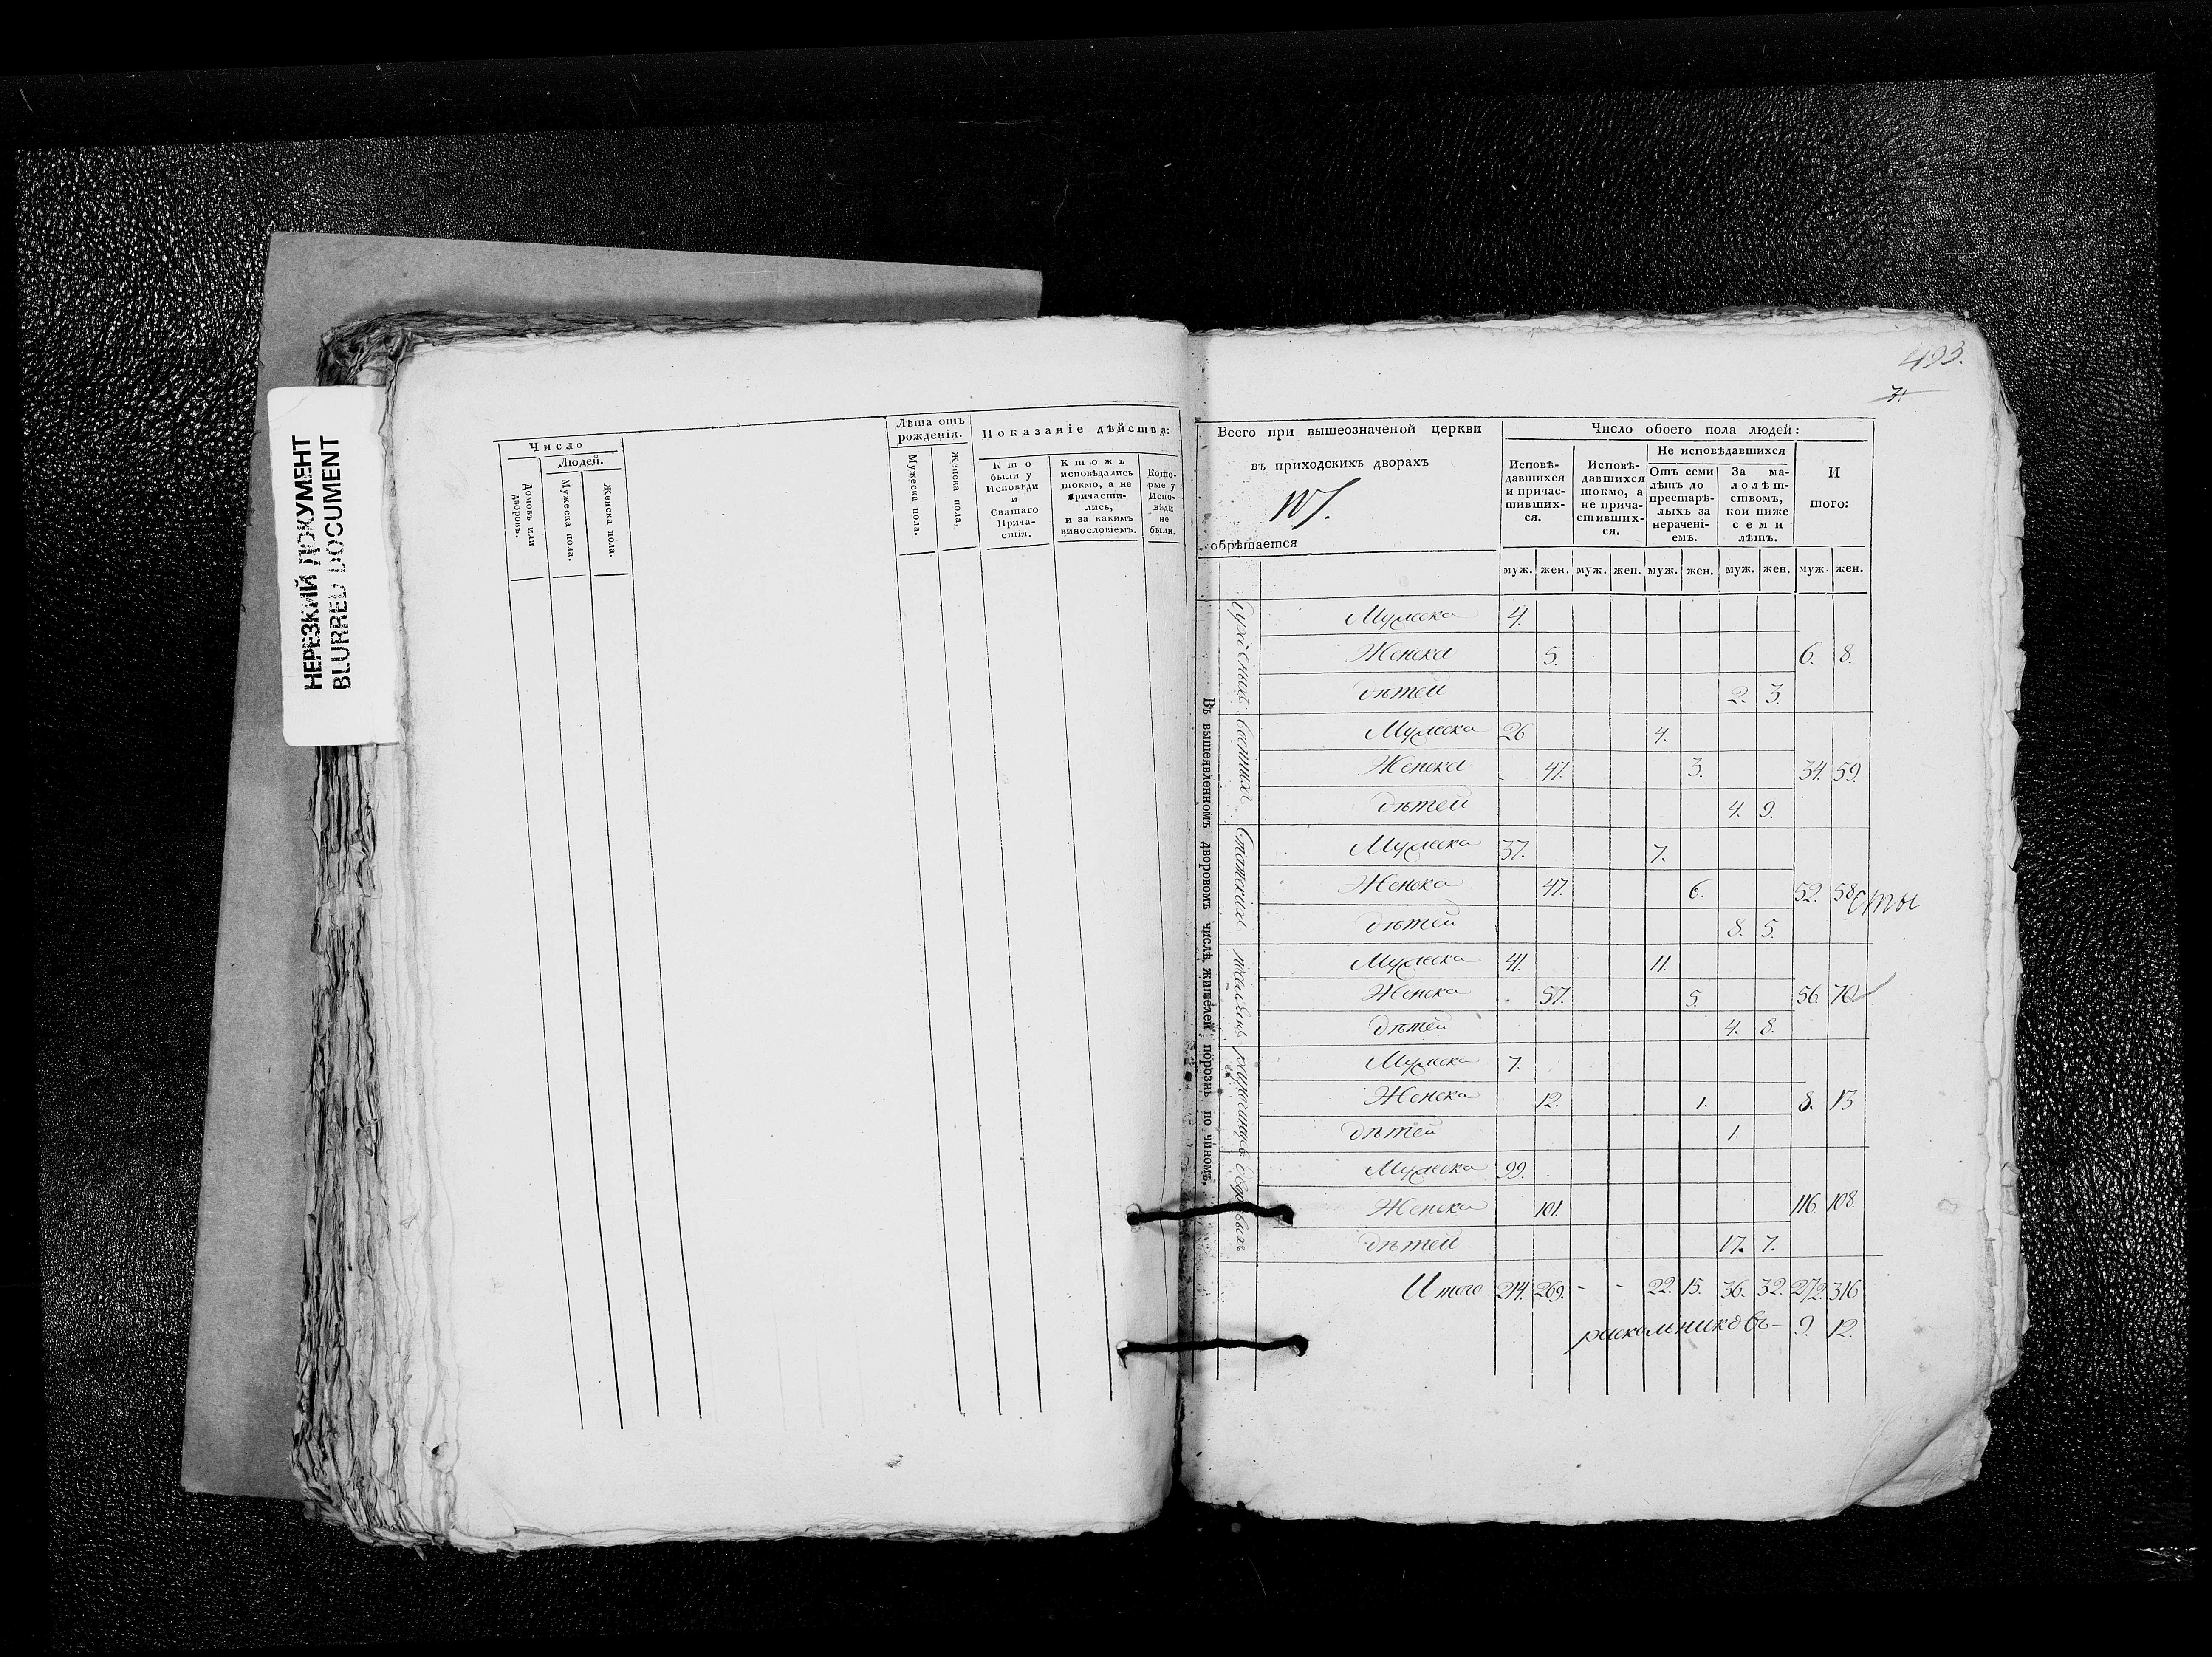 НЕРЕЗКИЙ ДОКУМЕНТ
BLURRED DOCUMENT
Число
Людей.
Домовъ или дворовъ.
Мужеска пола.
Женска пола.
Лѣта отъ рожденія.
Мужеска пола.
Женска пола.
Показаніе дѣйства:
Кто были у Исповѣди и Святаго Причастія.
Ктожъ исповѣдались токмо, а не причастились, и за какимъ винословіемъ.
Которые у Исповѣди не были.
493.
Всего при вышеозначеной церкви
въ приходскихъ дворахъ
обрѣтается
Число обоего пола людей:
Исповѣдавшихся и причастившихся.
Исповѣдавшихся токмо, а не причастившихся.
Не исповѣдавшихся
Отъ семи лѣтъ до престарѣлыхъ за нераченіемъ.
За малолѣтствомъ, кои ниже семи лѣтъ.
И того:
муж. жен. муж. жен. муж. жен. муж. жен. муж. жен.
Въ вышеявленномъ дворовомъ числѣ жителей порознь по чиномъ.
Мужеска 4.
Женска 5. 6. 8.
дѣтей 2. 3.
Мужеска 26 4.
Женска 47. 3. 34. 59.
дѣтей 4. 9.
Мужеска 37. 7.
Женска 47. 6. 52. 58
сты
дѣтей 8. 5.
Мужеска 41. 11.
Женска 57. 5. 56. 70
дѣтей 4. 8.
Мужеска 7.
Женска 12. 1. 8. 13
дѣтей 1.
Мужеска 99.
Женска 101. 116. 108.
дѣтей 17. 7.
Итого 214. 269. - - 22. 15. 36. 32. 272. 316
раскольниковъ - 9. 12.